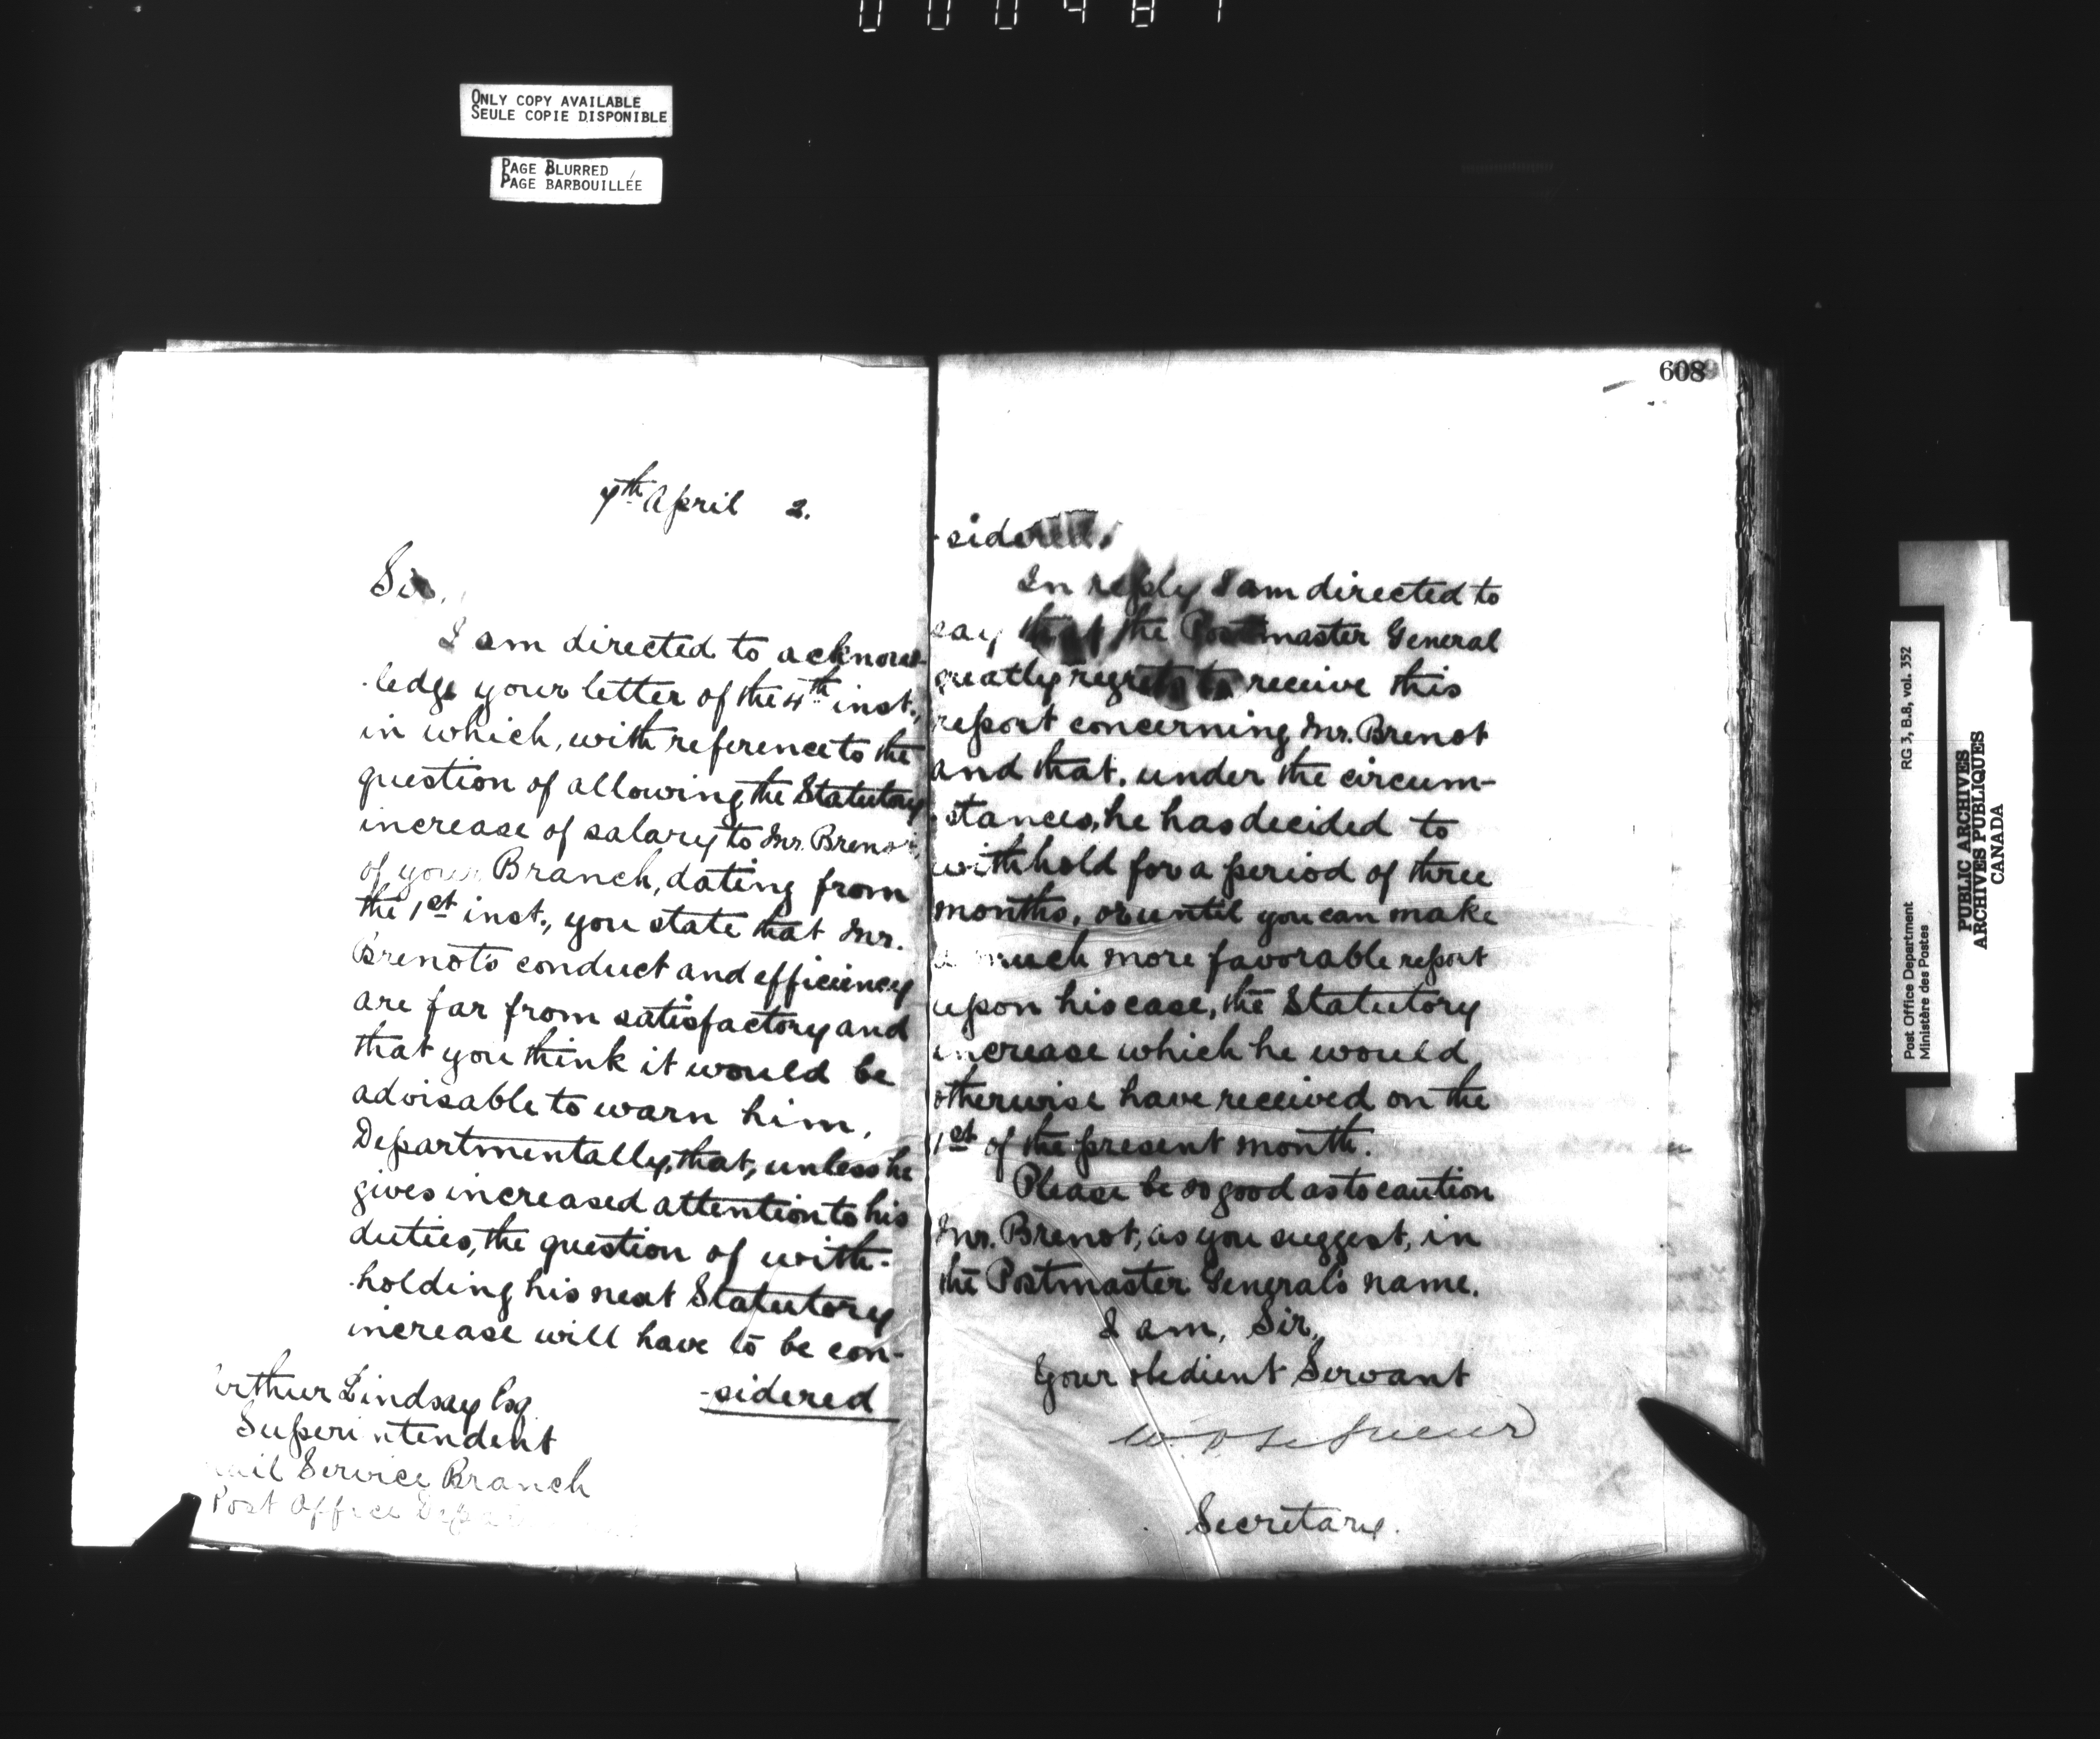 000487
ONLY COPY AVAILABLE
SEULE COPIE DISPONIBLE
PAGE BLURRED
PAGE BARBOUILLÉE
608
7th April 2.
Sir,
I am directed to acknow-
-ledge your letter of the 4th inst.,
in which, with reference to the
question of allowing the Statutory
increase of salary to Mr. Brenot,
of your Branch, dating from
the 1st inst., you state that Mr.
Brenot's conduct and efficiency
are far from satisfactory and
that you think it would be
advisable to warn him,
Departmentally, that, unless he
gives increased attention to his
duties, the question of with-
-holding his next Statutory
increase will have to be con-
-sidered
Arthur Lindsay Esq
Superintendent
Mail Service Branch
Post Office
-sidered.
In reply I am directed to
say that the Postmaster General
greatly regrets to receive this
report concerning Mr. Brenot
and that, under the circum-
-stances, he has decided to
withhold for a period of three
months, or until you can make
a much more favorable report
upon his case, the Statutory
increase which he would
otherwise have received on the
1st of the present month.
Please be so good as to caution
Mr. Brenot, as you suggest, in
the Postmaster General's name.
I am, Sir,
Your obedient Servant
W. D. LeSueur
Secretary.
Post Office Department
Ministère des Postes
RG 3, B.8, vol. 352
PUBLIC ARCHIVES
ARCHIVES PUBLIQUES
CANADA